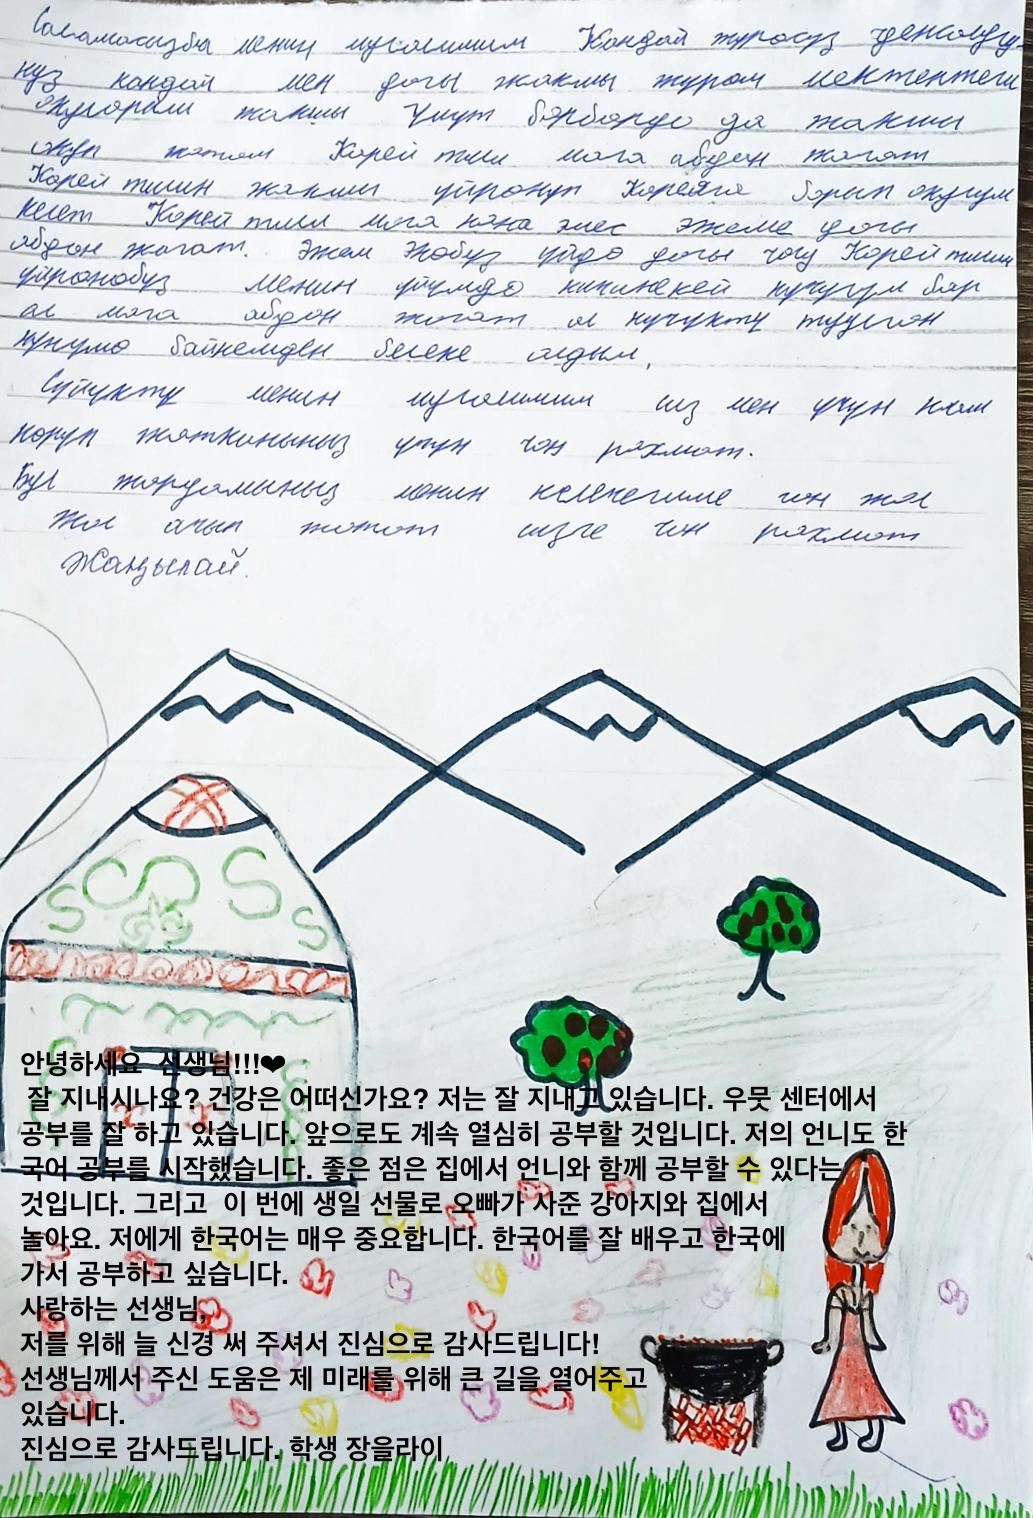 Саламатсызбы менин мугалимим Кандай жүрөсүз ден соолугу-
ңуз кандай мен дагы жакшы жүрөм мектептеги
окууларым жакшы Үмүт борбордо да жакшы
окуп жатам Корей тили мага абдан жагат
Корей тилин жакшы үйрөнүп Кореяга барып окугум
келет Корей тили мага гана эмес эжеме дагы
абдан жагат. Эжем экөбүз үйдө дагы чогу Корей тилин
үйрөнөбүз менин үйүмдө кичинекей күчүгүм бар
ал мага абдан жагат ал күчүктү туулган
күнүмө байкемден белек алдым.
Сүйүктүү менин мугалимим сиз мен үчүн кам
көрүп жатканыңыз үчүн чоң рахмат.
Бул жардамыңыз менин келечегиме чоң жол
жол ачып жатат сизге чоң рахмат
Жаңылай.
안녕하세요 선생님!!!❤
잘 지내시나요? 건강은 어떠신가요? 저는 잘 지내고 있습니다. 우뭇 센터에서
공부를 잘 하고 있습니다. 앞으로도 계속 열심히 공부할 것입니다. 저의 언니도 한
국어 공부를 시작했습니다. 좋은 점은 집에서 언니와 함께 공부할 수 있다는
것입니다. 그리고 이 번에 생일 선물로 오빠가 사준 강아지와 집에서
놀아요. 저에게 한국어는 매우 중요합니다. 한국어를 잘 배우고 한국에
가서 공부하고 싶습니다.
사랑하는 선생님,
저를 위해 늘 신경 써 주셔서 진심으로 감사드립니다!
선생님께서 주신 도움은 제 미래를 위해 큰 길을 열어주고
있습니다.
진심으로 감사드립니다. 학생 장을라이